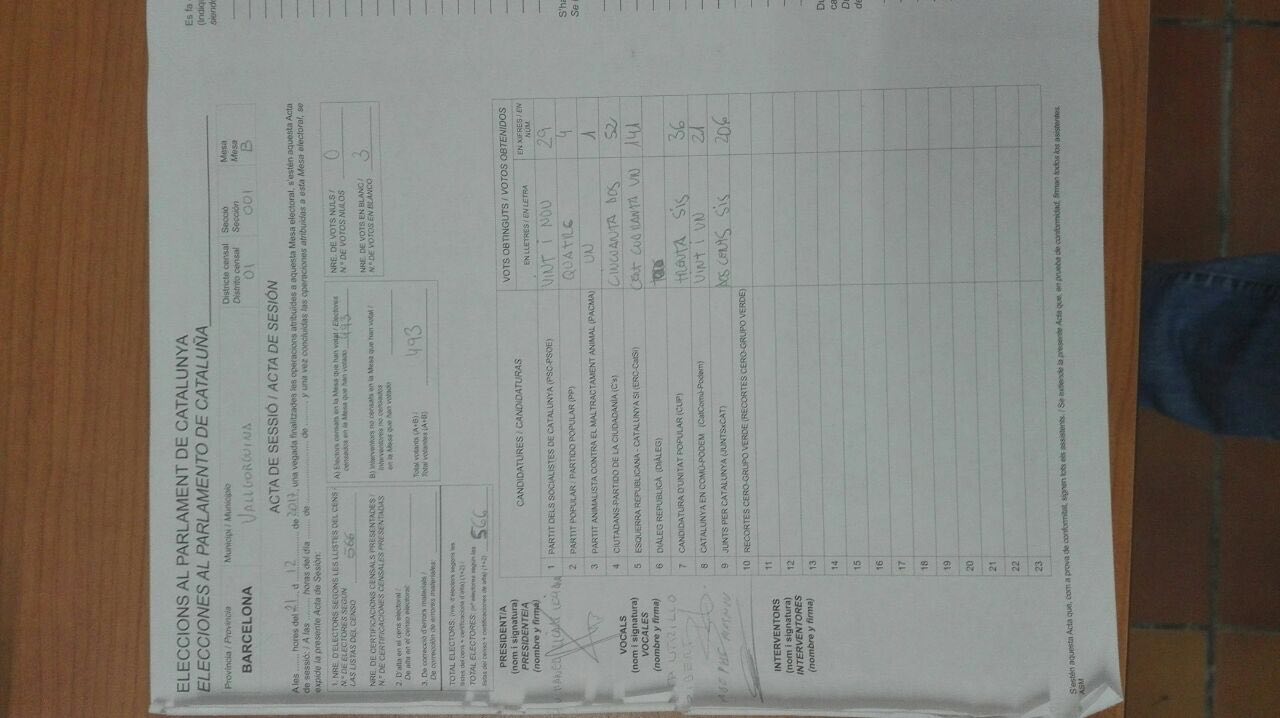 Es fa
(Indiq
siend
S'ha
Se
Du
ca
D
de
ELECCIONS AL PARLAMENT DE CATALUNYA
ELECCIONES AL PARLAMENTO DE CATALUÑA
Província / Provincia
BARCELONA
Municipi / Municipio
VALLGORGUINA
Districte censal
Distrito censal
01
Secció
Sección
001
Mesa
Mesa
B
ACTA DE SESSIÓ / ACTA DE SESIÓN
A les ........ hores del 21 d 12 de 2017, una vegada finalitzades les operacions atribuïdes a aquesta Mesa electoral, s'estén aquesta Acta
de sessió: / A las ........ horas del día ........ de ........ de ........ y una vez concluidas las operaciones atribuidas a esta Mesa electoral, se
expide la presente Acta de Sesión:
1. NRE. D'ELECTORS SEGONS LES LLISTES DEL CENS /
N.º DE ELECTORES SEGÚN
LAS LISTAS DEL CENSO 566
NRE. DE CERTIFICACIONS CENSALS PRESENTADES /
N.º DE CERTIFICACIONES CENSALES PRESENTADAS
2. D'alta en el cens electoral /
De alta en el censo electoral:
3. De correcció d'errors materials /
De corrección de errores materiales:
TOTAL ELECTORS: (nre. d'electors segons les
llistes del cens + certificacions d'alta) (1+2) /
TOTAL ELECTORES: (nº electores según las
listas del censo + certificaciones de alta) (1+2) 566
A) Electors censats en la Mesa que han votat / Electores
censados en la Mesa que han votado 493
B) Interventors no censats en la Mesa que han votat /
Interventores no censados
en la Mesa que han votado
Total votants (A+B) /
Total votantes (A+B) 493
NRE. DE VOTS NULS /
N.º DE VOTOS NULOS 0
NRE. DE VOTS EN BLANC /
N.º DE VOTOS EN BLANCO 3
PRESIDENTIA
(nom i signatura)
PRESIDENTEIA
(nombre y firma)
VOCALS
(nom i signatura)
VOCALES
(nombre y firma)
INTERVENTORS
(nom i signatura)
INTERVENTORES
(nombre y firma)
CANDIDATURES / CANDIDATURAS
VOTS OBTINGUTS / VOTOS OBTENIDOS
EN LLETRES / EN LETRA
EN XIFRES / EN NÚM.
1 PARTIT DELS SOCIALISTES DE CATALUNYA (PSC-PSOE) VINT I NOU 29
2 PARTIT POPULAR / PARTIDO POPULAR (PP) QUATRE 4
3 PARTIT ANIMALISTA CONTRA EL MALTRACTAMENT ANIMAL (PACMA) UN 1
4 CIUTADANS-PARTIDO DE LA CIUDADANÍA (C's) CINQUANTA DOS 52
5 ESQUERRA REPUBLICANA - CATALUNYA SÍ (ERC-CatSí) CENT QUARANTA UN 141
6 DIÀLEG REPUBLICÀ (DIÀLEG)
7 CANDIDATURA D'UNITAT POPULAR (CUP) TRENTA SIS 36
8 CATALUNYA EN COMÚ-PODEM (CatComú-Podem) VINT I UN 21
9 JUNTS PER CATALUNYA (JUNTSxCAT) DOS CENTS SIS 206
10 RECORTES CERO-GRUPO VERDE (RECORTES CERO-GRUPO VERDE)
11
12
13
14
15
16
17
18
19
20
21
22
23
S'estén aquesta Acta que, com a prova de conformitat, signen tots els assistents. / Se extiende la presente Acta que, en prueba de conformidad, firman todos los asistentes.
ASM